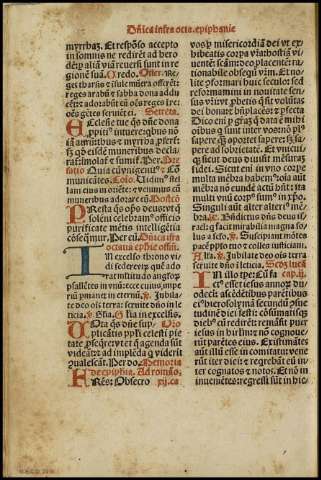 Dñica infra octa. epiphanie
myrrhaz. Et respõso accepto
in somnis ne redirẽt ad hero
dẽ: p aliã viã reuersi sunt in re
gionẽ suã. Credo. Offer. Re
ges tharsis & isule mũera offerẽt:
reges arabũ & sabba dona addu
cẽt: & adorabũt eũ oẽs reges tre:
oẽs gẽtes seruiẽt ei. Secreta.
Ecclesie tue qs dñe dona
ppitius intuere: quibus nõ
iã aurum thus & myrrha pfert:
sed qd eisdẽ muneribus decla
rat: imolat̃ & sumit̃. Per. Pre
fatio Quia cũ vnigenit9. Cõ
municãtes. Cõio. Vidim9 stel
lam eius in oriẽte: & venimus cũ
muneribus adorare dñm. Postcõ
Presta qs oips deus: vt q̃
solemni celebram9 officio
purificate mẽtis intelligẽtia
cõseq̃mur. Per eũ. Dñica ifra
octauas epiphie officiũ.
In excelso throno vi
di sedere virũ: quẽ ado
rat multitudo angeloꝝ
psallẽtes in vnũ: ecce cuius impe
riũ nomen ẽ in eternũ. ps Jubila
te deo oĩs terra: seruite dño in le
ticia. Gl̃ia. Gl̃ia in excelsis.
Vota qs dñe suppli Oro
plicãtis ppl̃i celesti pie
tate pseq̃re: vt & q̃ agenda sũt
videãt: & ad implẽda q̃ viderĩt
cõualescãt. Per do. Memoria
de epiphia. Ad romão.
Rẽs: Obsecro xij. ca
vos p misericordiã dei: vt ex
hibeatis corpa vr̃a hostiã vi
uentẽ: scãm: deo placentẽ: ra
tionabile obsequiũ vr̃m. Et no
lite pformari huic seculo: sed
reformamini in nouitate sen
sus vr̃i: vt pbetis q̃ sit volũtas
dei bona: et bñplacẽs: et pfecta
Dico eni p gr̃az q̃ data ẽ mihi
oibus q sunt inter vos: nõ pl9
sapere q̃ȝ oportet sapere: sȝ sa
pere ad sobrietatẽ. Et vnicuiq̃
sicut deus diuisit mẽsurã
fidei. Sicut eni in vno corpe
multa mẽbra habem9: oĩa aũt
mẽbra nõ eundẽ actũ hñt: ita
multi vnũ corp9 sum9 in xp̃o.
Singuli aũt alter alteri9 mẽ
bra. Gr̃. Bñdictus dñs deus is
rael: q̃ facit mirabilia magna so
lus a seclo. Suscipiant mõtes
pacẽ pplo tuo: et colles iusticiam.
Alla. Jubilate deo oĩs terra
seruite dño ĩ leticia. Scdȝ lucã
In illo tpe: Cũ fa cap. ij.
ctus esset iesus annoꝝ duo
decĩ: ascẽdẽtibus parẽtibus
ei9 hierosolymã: scdȝ psuetu
dinẽ diei festi: cõsũmatisq̃ȝ
dieb9 cũ redirẽt: remãsit puer
iesus in hierlm: & nõ cognoue
rũt parẽtes eius. Existimãtes
aũt illũ esse in comitatu: vene
rũt iter diei: & req̃rebãt eũ in
ter cognatos & notos. Et nõ in
uenientes: regressi sũt in hie